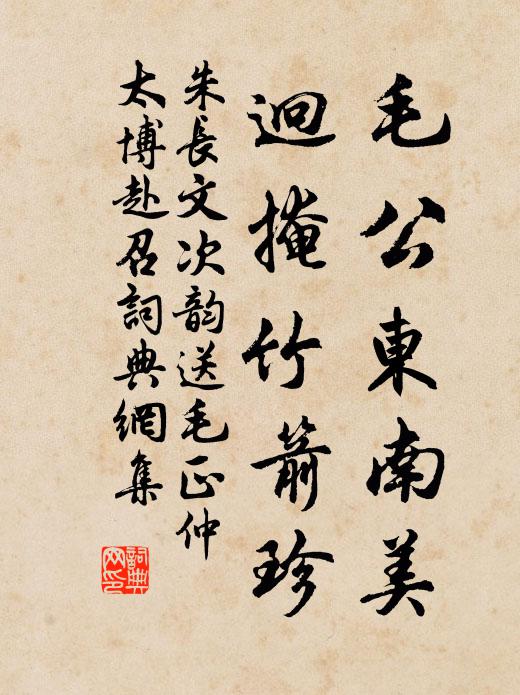 毛公東南美
迥掩竹箭珍
朱長文次韵送毛正仲
太博赴召詞典網集
詞典
网印